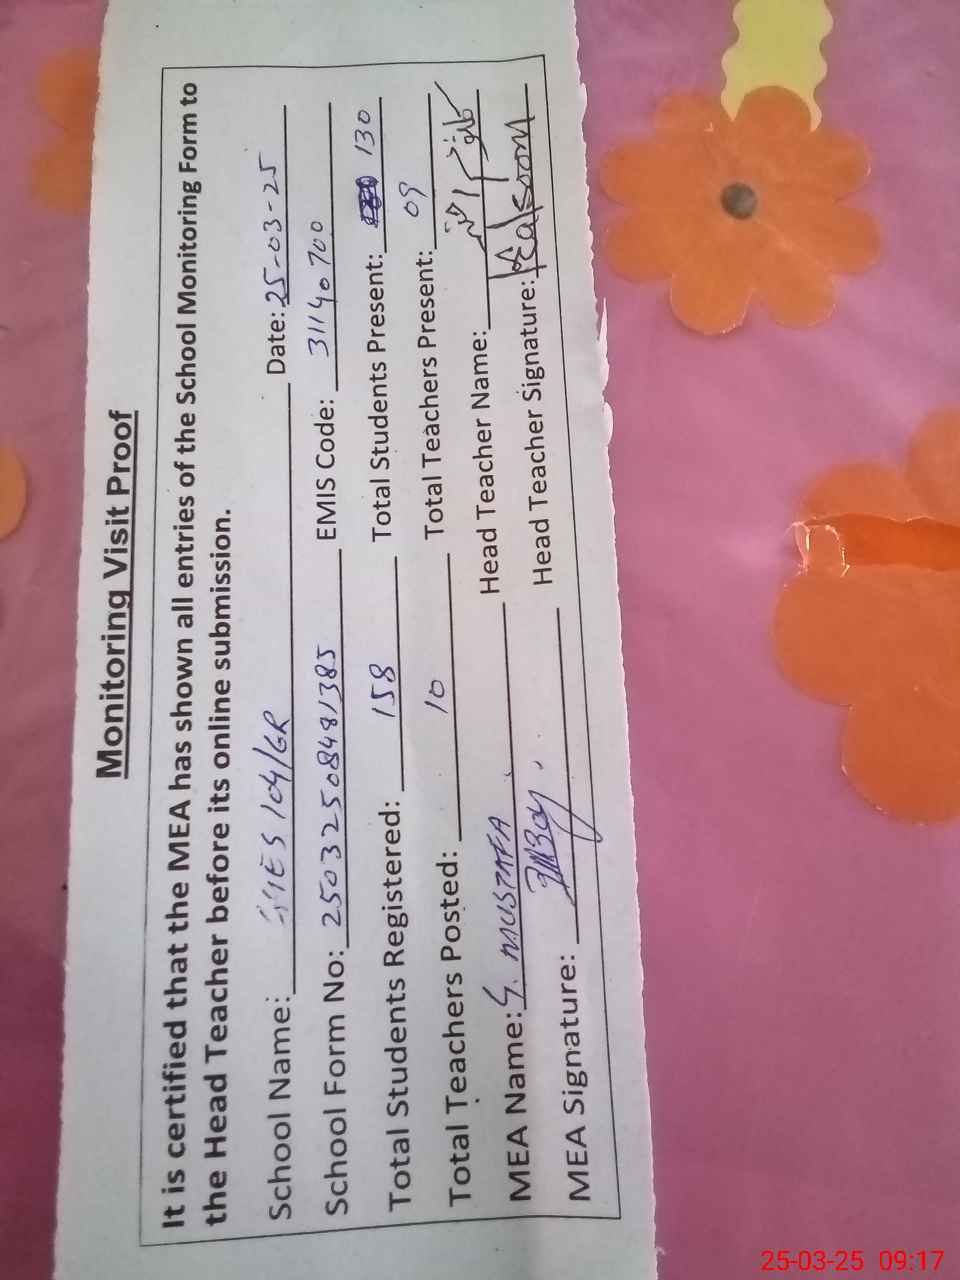 Monitoring Visit Proof
It is certified that the MEA has shown all entries of the School Monitoring Form to
the Head Teacher before its online submission.
School Name: 104/GR Date: 25-03-25
School Form No: 2503250848/385 EMIS Code: 31140700
Total Students Registered: 158 Total Students Present: 130
Total Teachers Posted: 10 Total Teachers Present: 09
MEA Name: G. MUSTAFA Head Teacher Name:
MEA Signature: Head Teacher Signature: Kalsoom
25-03-25 09:17